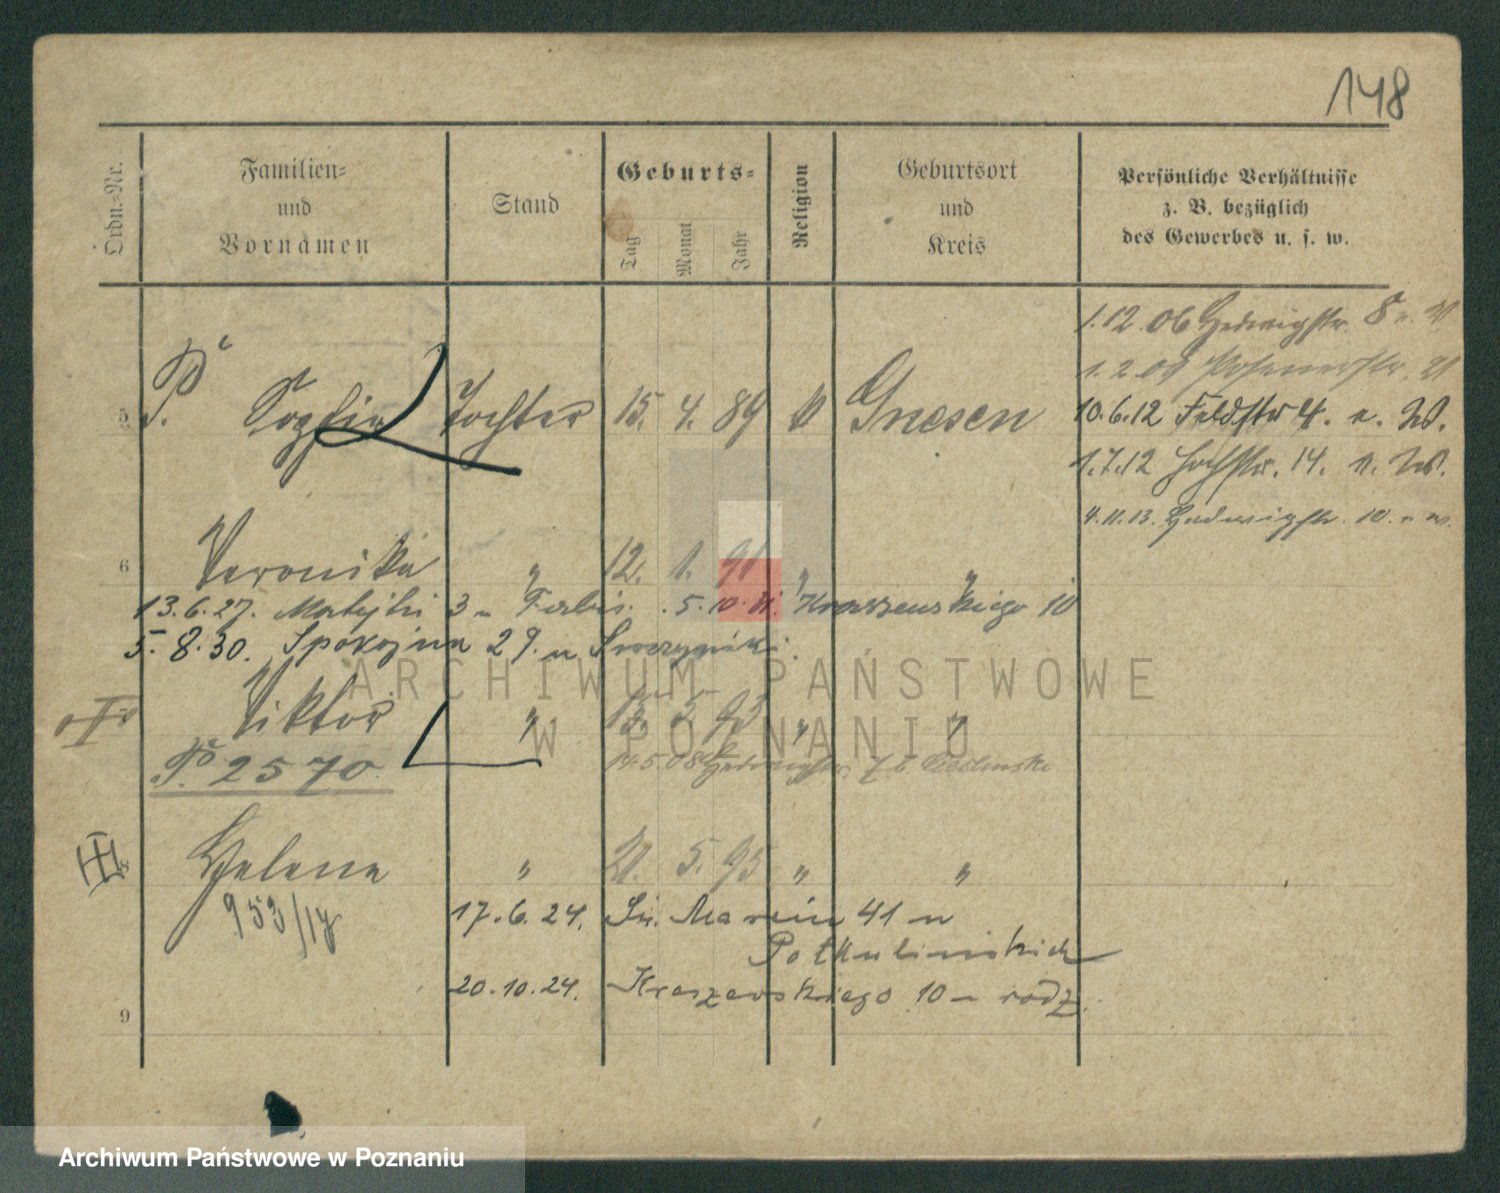 148
Ordn.-Nr.
Familien-
und
Vornamen
Stand
Geburts-
Tag
Monat
Jahr
Religion
Geburtsort
und
Kreis
Persönliche Verhältnisse
z. B. bezüglich
des Gewerbes u. s. w.
1.12.06 Hedwigstr. 8
1.2.09 Posenerstr. 21
5 Sophia Tochter 15. 4. 89 k Gnesen
10.6.12 Feldstr 4. n. W.
1.7.12 Hochstr. 14. n. W.
4.11.13. Hedwigstr. 10. n w.
6 Veronika " 12. 1. 91 " "
13.6.27. Matejki 3 - 5.10.31. Kraszewskiego 10
5.8.30. Spokojna 29. u
Viktor " 5 93 " "
2570 14.5.08 Hedwigstr. 7
8 Helene " 21. 5. 95 " "
953/
17.6.24. Św. Marcin 41 u
Potkulinskich
20.10.24. Kraszewskiego 10 - rodz.
9
ARCHIWUM PAŃSTWOWE
W POZNANIU
Archiwum Państwowe w Poznaniu